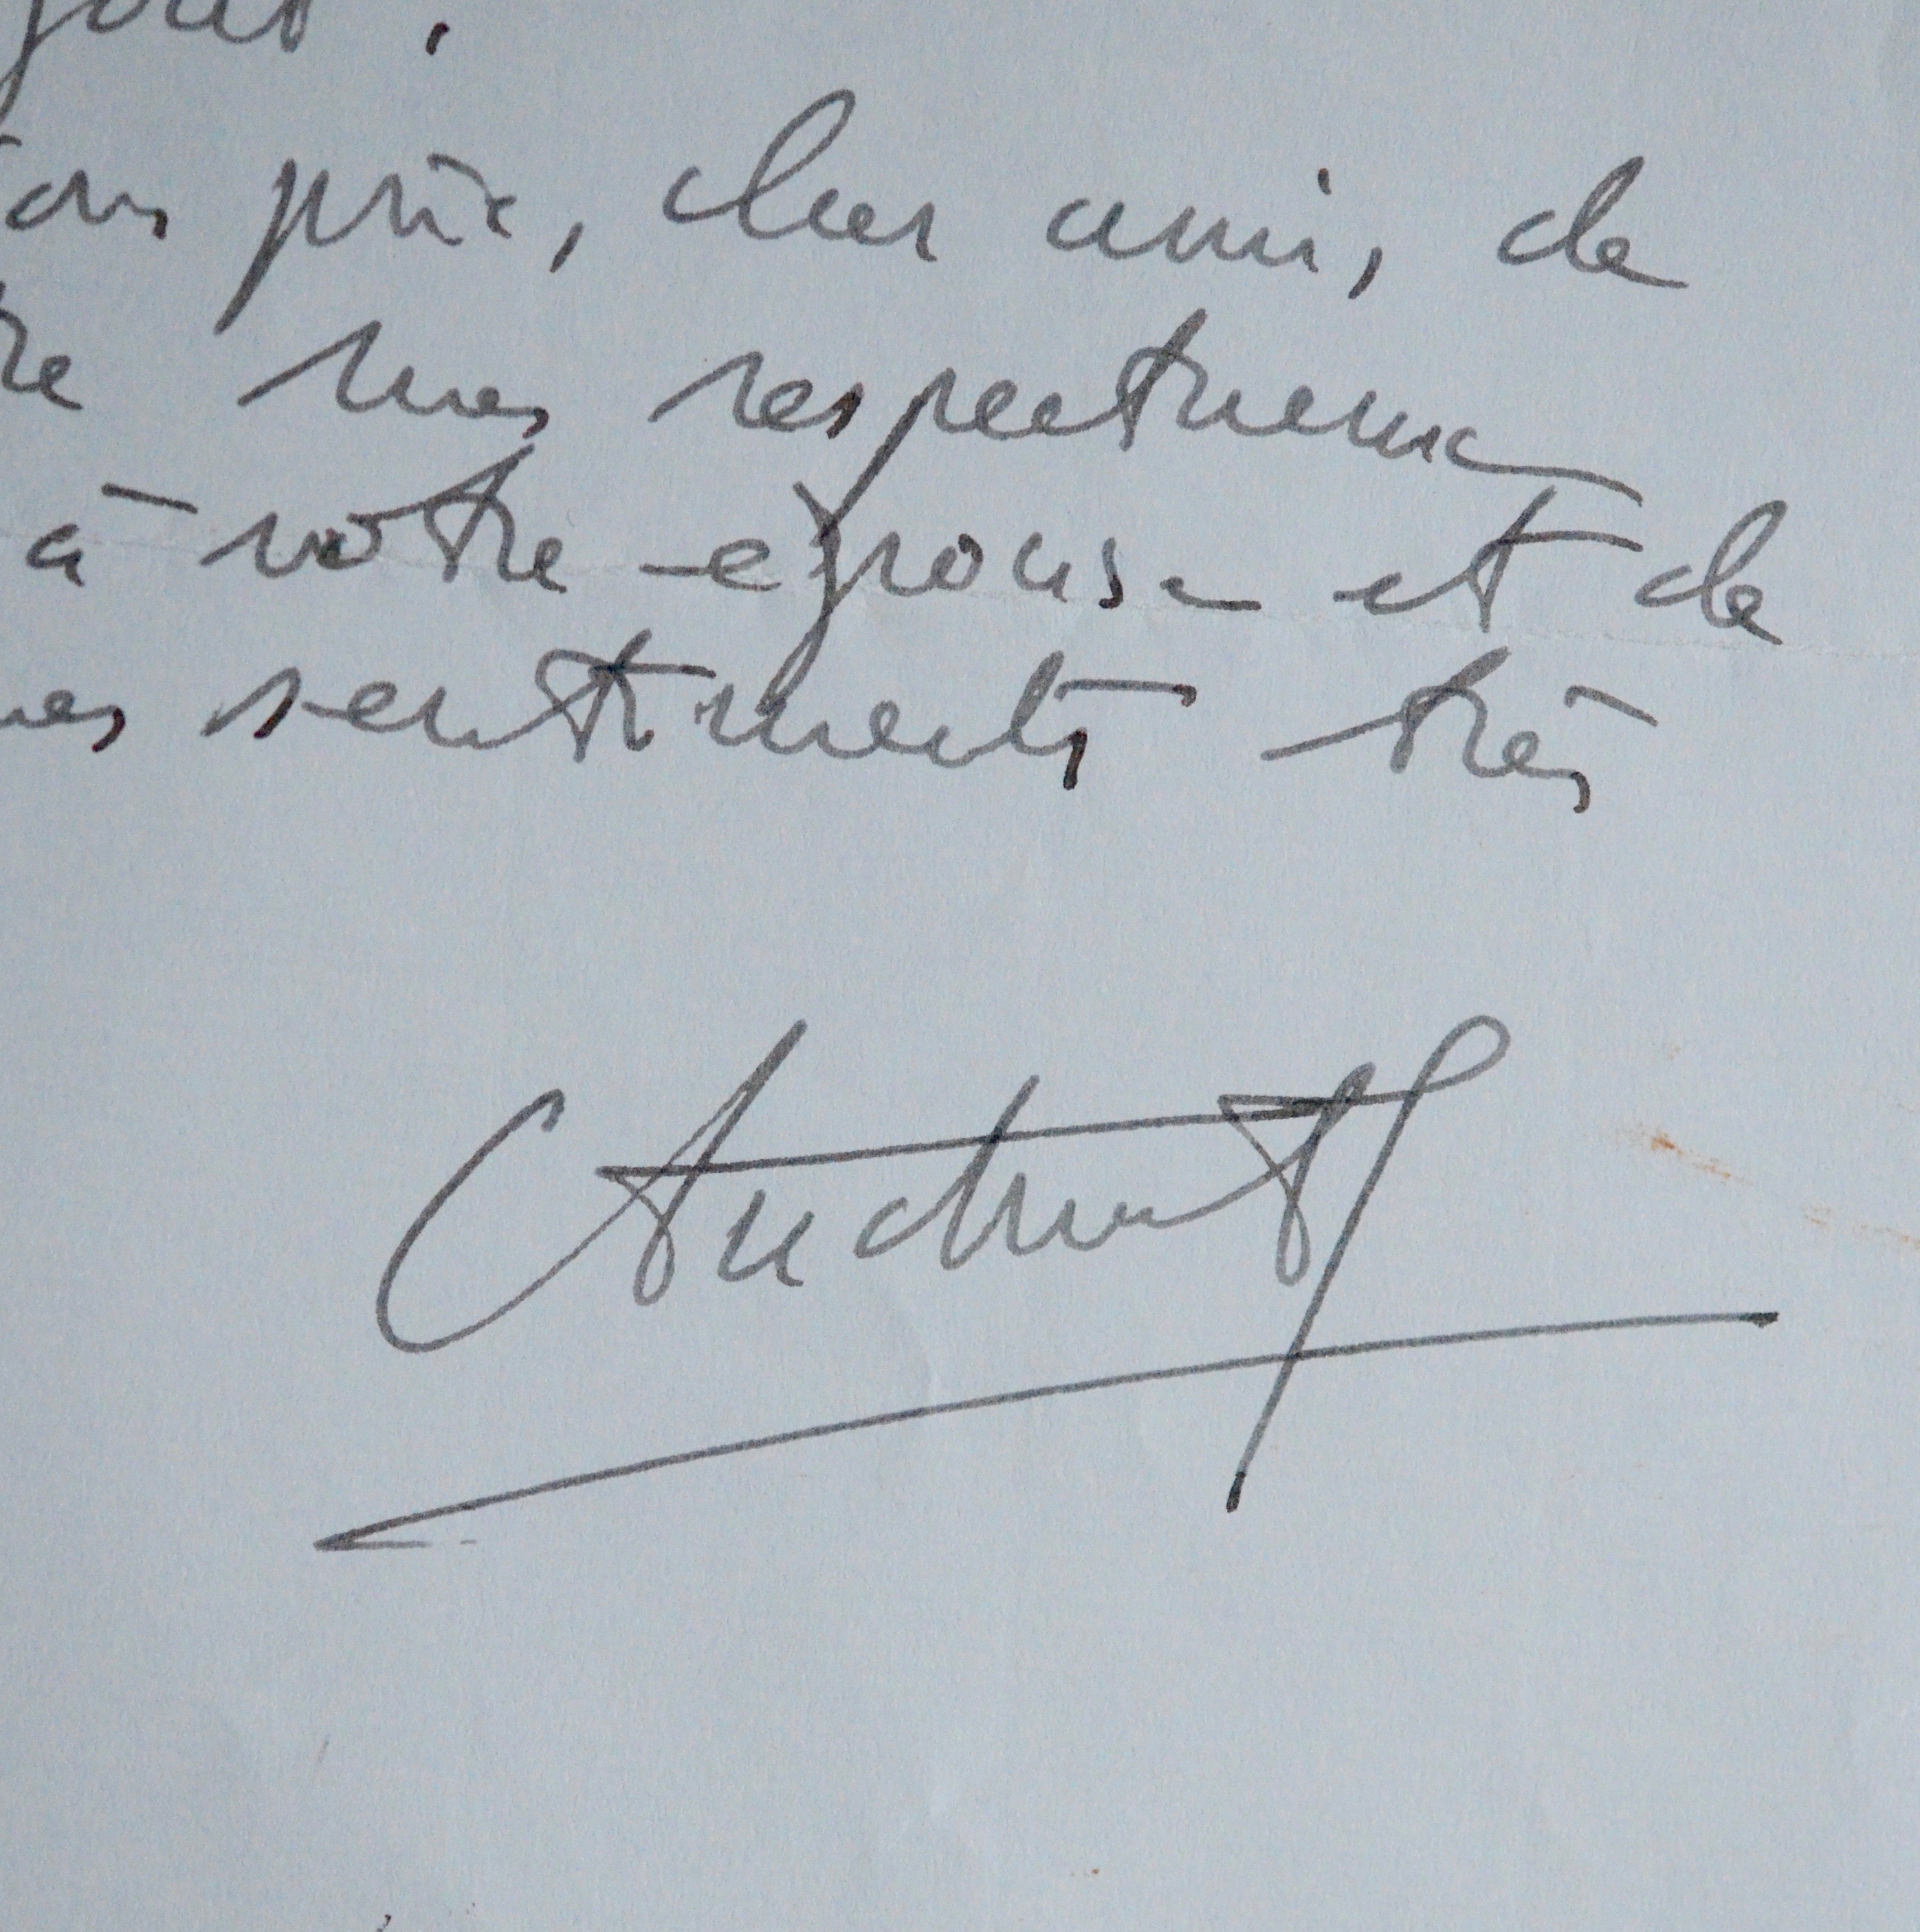 jours.
vous prie, cher ami, de
re mes respectueux
à votre épouse et de
mes sentiments très